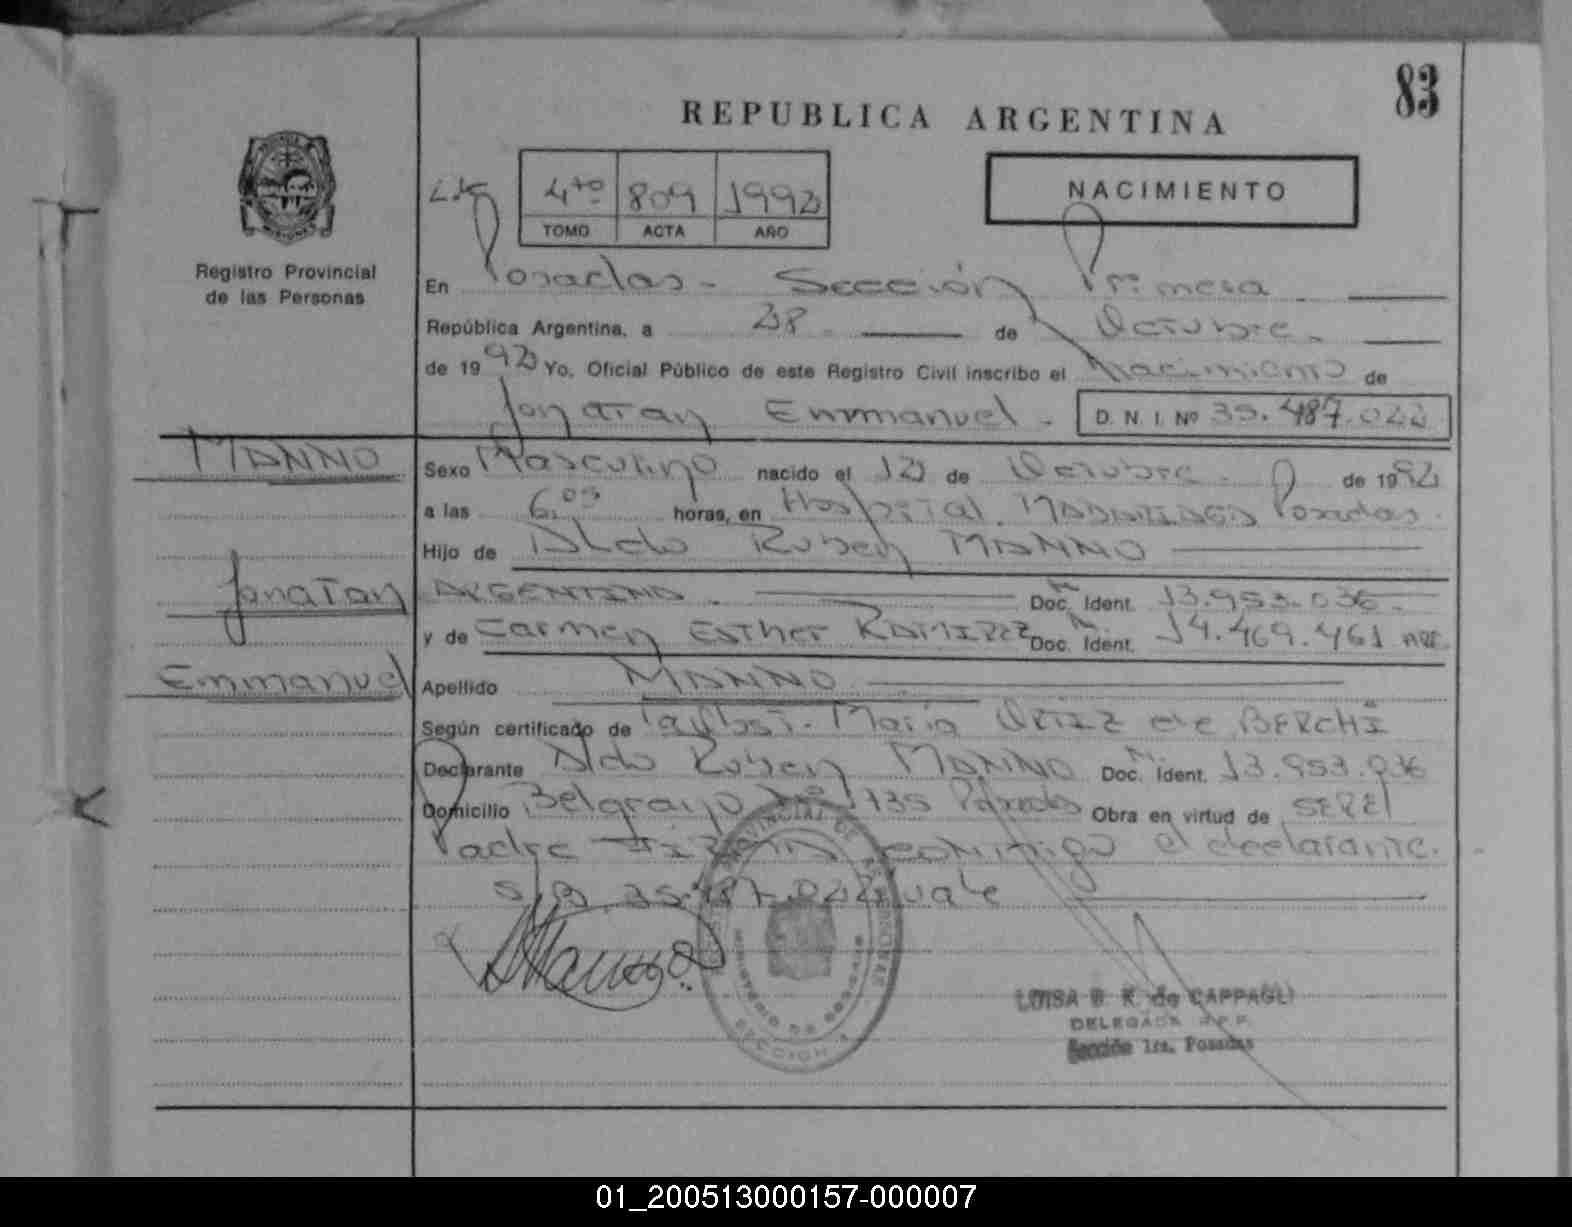 83
REPUBLICA ARGENTINA
4to 809 1992
TOMO ACTA AÑO
NACIMIENTO
MISIONES
Registro Provincial
de las Personas
En Posadas - Sección Primera.
República Argentina, a 28 de Octubre.
de 1992 Yo, Oficial Público de este Registro Civil inscribo el Nacimiento de
Jonatan Emmanuel. D. N. I. Nº 35.487.022
MANNO
Sexo Masculino nacido el 12 de Octubre. de 1992
a las 6.05 horas, en Hospital. MADARIAGA Posadas.
Hijo de Aldo Ruben MANNO
Jonatan
ARGENTINO. Doc. Ident. 13.953.036.
y de Carmen Esther RAMIREZ Doc. Ident. 14.469.461 ARG.
Emmanuel
Apellido MANNO
Según certificado de la Obst. Maria ORTIZ de BERCHI
Declarante Aldo Ruben MANNO Doc. Ident. 13.953.036
Domicilio Belgrano Nº 1735 Posadas Obra en virtud de SER El
Padre Firma conmigo el declarante.
S/B 35.487.022 vale
LUISA B. K. de CAPPAGLI
DELEGADA R.P.P.
Sección 1ra. Posadas
01_200513000157-000007